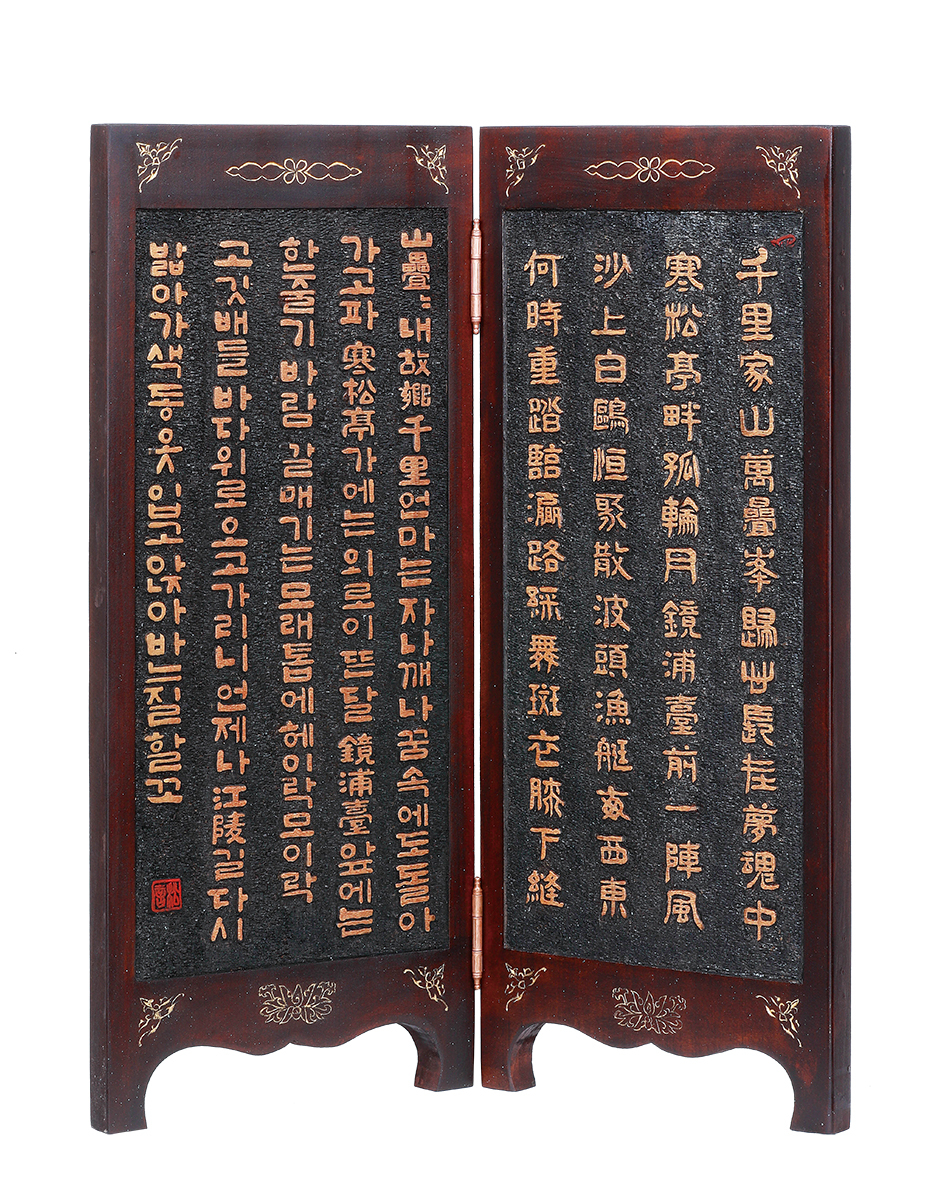 千里家山萬疊峯歸心長在夢魂中
寒松亭畔孤輪月鏡浦臺前一陣風
沙上白鷗恒聚散波頭漁艇每西東
何時重踏臨瀛路綵舞斑衣膝下縫
山疊〻내故鄕千里언마는자나깨나꿈속에도돌아
가고파 寒松亭가에는외로이뜬달 鏡浦臺앞에는
한줄기 바람 갈매기는모래톱에헤이락모이락
고깃배들바다위로오고가리니언제나江陵길다시
밟아가색동옷입고앉아바느질할꼬